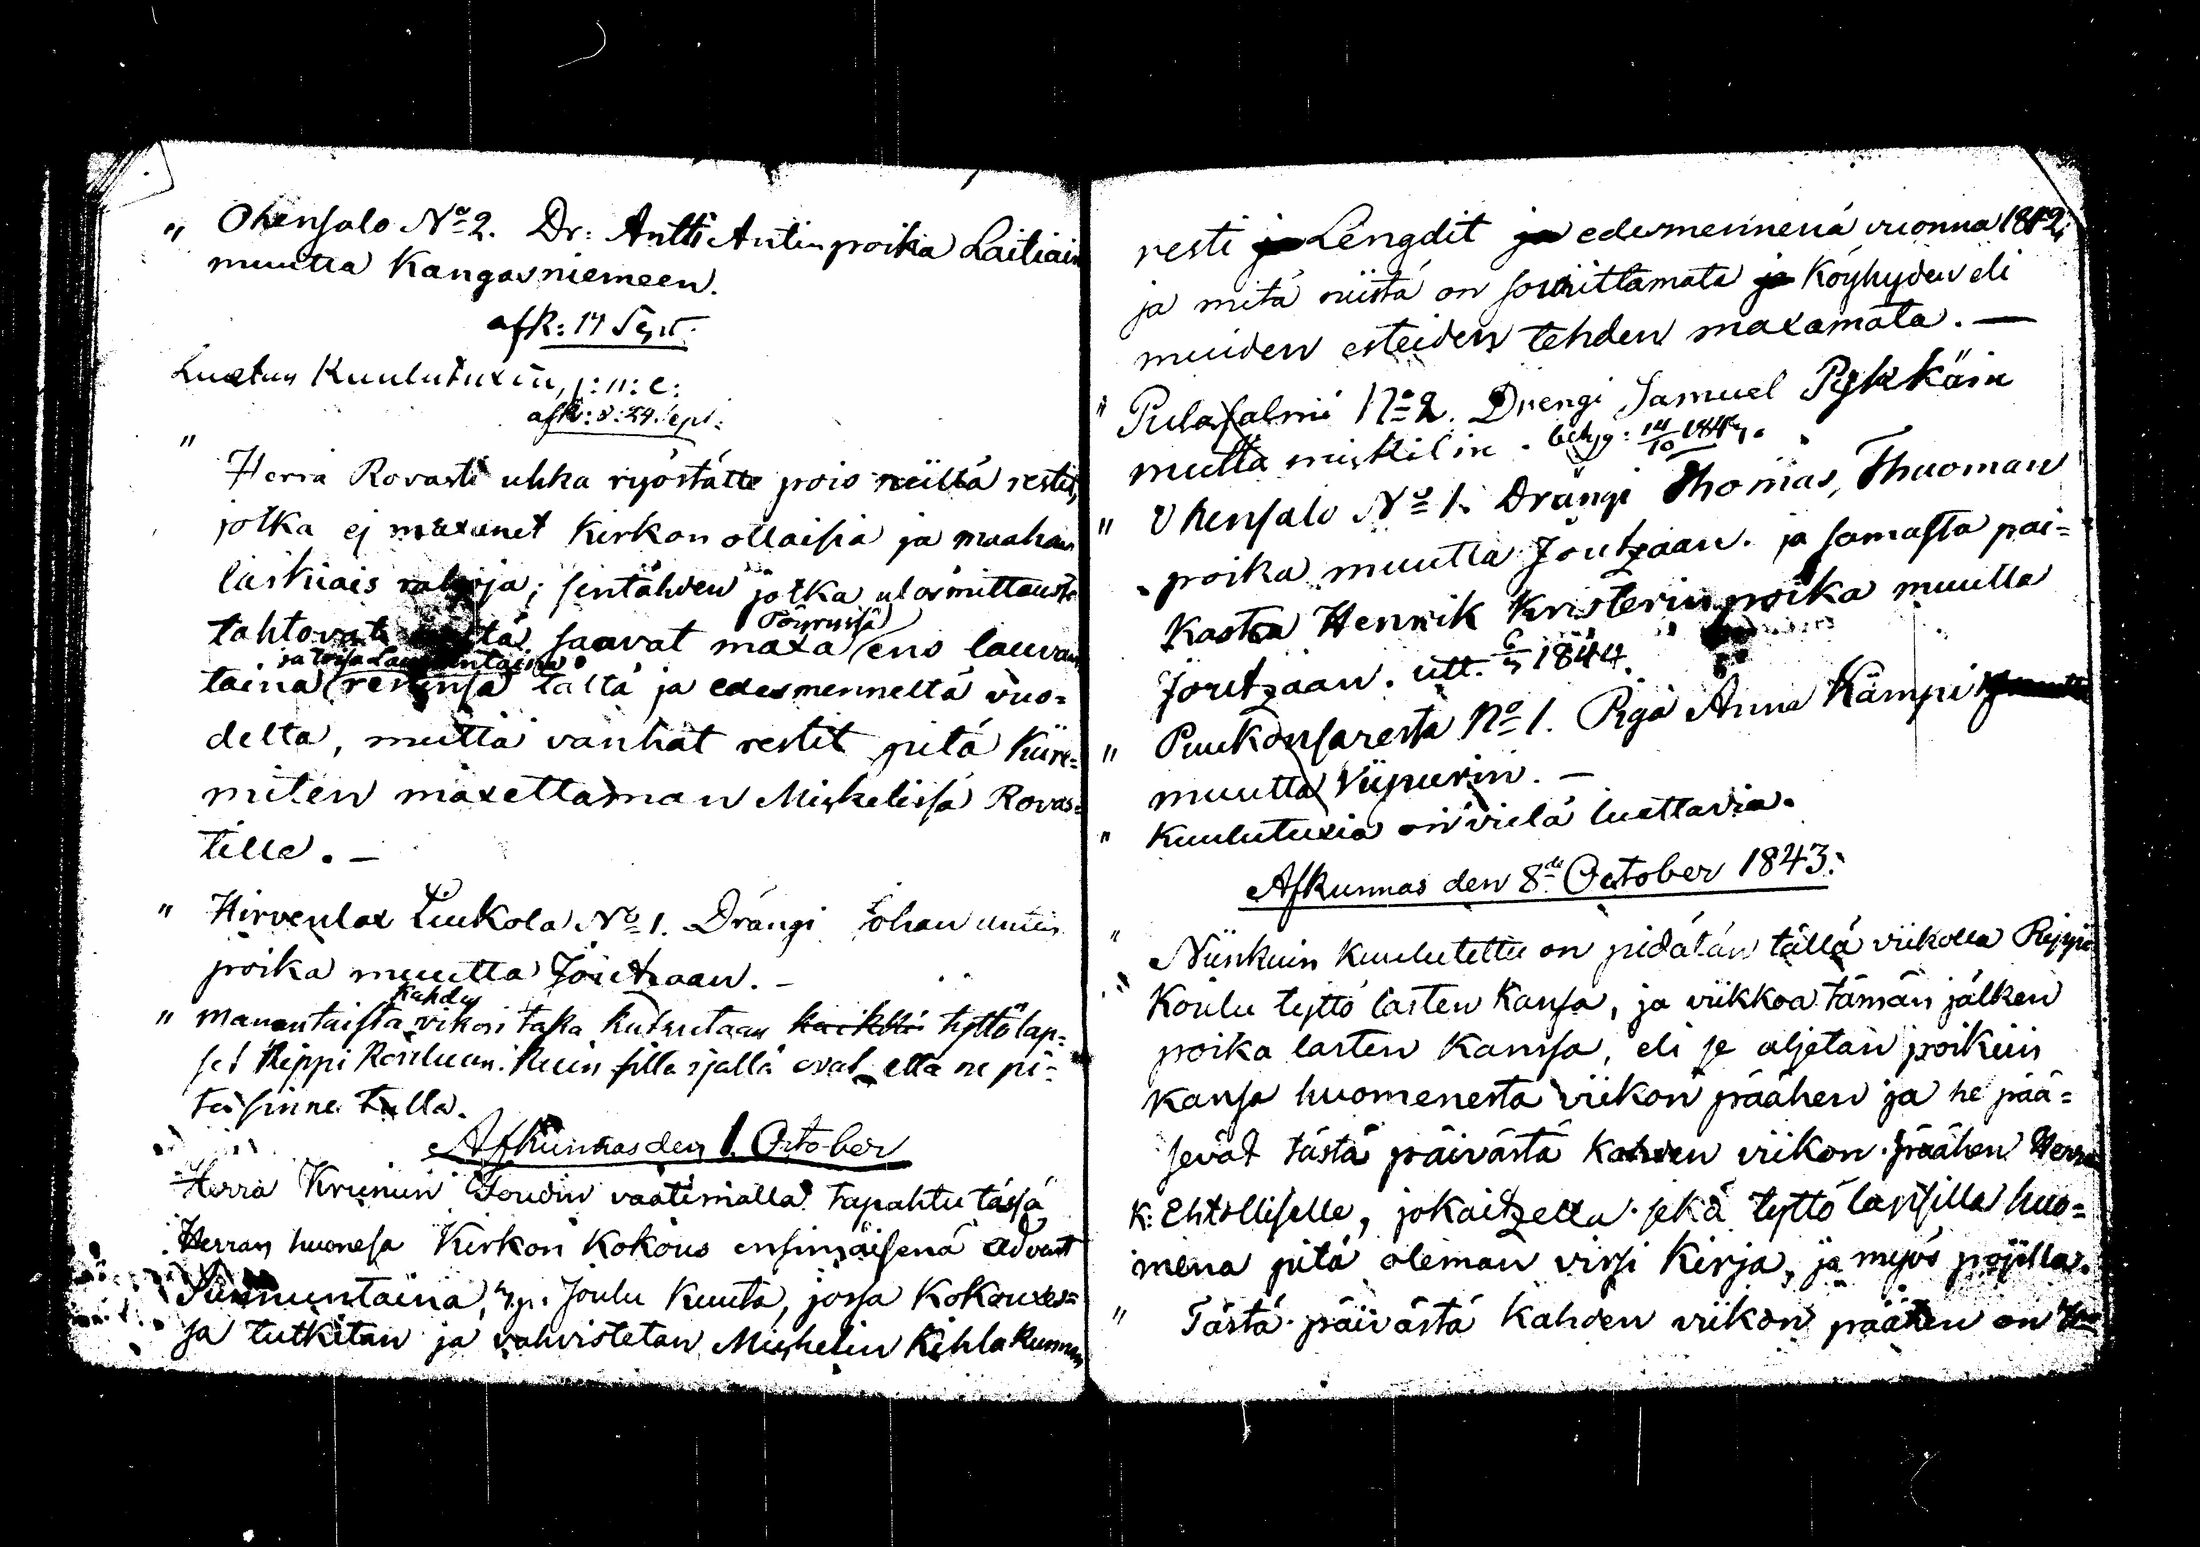 " Ohensalo No 2. Dr: Antti Antin poika Laitiain
muutta Kangasniemeen.
afk: 17 Sept.
Luetun Kuulutuxiin,
afk: d: 24. Sept:
" Herra Rovasti uhka ryöstätte pois niiltä restit,
jotka ej maxanet Kirkon ollaisia ja maahan
laskiais rahoja; sentähden jotka ulosmittausta
tahtovat saavat maxa Töyrusjä ens lauvan
ja tosfa Lauvantaina
taina restinsä tältä ja edesmenneltä vuo=
delta, mutta vanhat restit pitä Kiire=
miten maxettaman Mickelissä Rovas=
tille. —
" Hirvenlax Liukola No 1. Drängi Johan Antin
poika muutta Joutzaan. —
" Manantaista Kahden vikon taka kutzutaan kaikki tyttö lap=
set Rippi Kouluun. Kuin sillä ijällä ovat että ne pi=
tä sinne tulla.
Afkunnas den 1. October
Herra Krunun Voudin vaatimalla tapahtu tässä
Herran huonesa Kirkon Kokous ensimäisenä Advent
Sunnuntaina, 4 p. Joulu Kuuta, jossa Kokouxes=
sa tutkitan ja vahvistetan Mickelin Kihlakunnan
resti ja Lengdit ja edesmennenä vuonna 1842,
ja mitä niistä on suorittamata ja Köyhyden eli
muiden esteiden tehden maxamata. —
" Pulasalmi No 2. Drengi Samuel Pykkäin
mutta mickelin. betyg: 14/10 1844.
" Ohensalo No 1. Drängi Thomas, Thuoman
poika muutta Joutzaan. ja samasta pai=
kasta Henrik Kristerin poika muutta
Joutzaan. utt. 6/4 1844.
" Puukonsaresta No 1. Piga Anna Kämpi
muutta Viipurin. —
" Kuulutuxia on vielä luettavia.
Afkunnas den 8de October 1843.
" Niinkuin Kuulutettu on pidätän tällä viikolla Rippi
Koulu tyttö lasten Kansa, ja viikkoa tämän jälken
poika lasten Kanssa, eli se aljetan poikiin
kansa huomenesta viikon päähen ja he pää=
sevät tästä päivästä kahden viikon päähen Herra
K: Ehtolliselle, jokaitzella sekä tyttö lapsilla huo=
mena pitä oleman virsi Kirja, ja myös pojilla.
" Tästä päivästä Kahden viikon päähen on